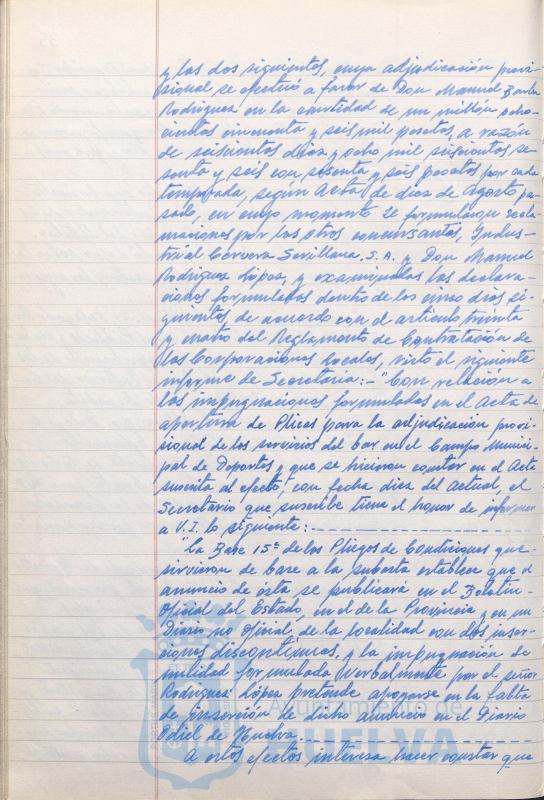 y los dos siguientes, cuya adjudicación provi-
sional se efectuó a favor de Don Manuel
Rodriguez en la cantidad de un millón ocho-
cientas cincuenta y seis mil pesetas, a razón
de seiscientas diez y ocho mil seiscientas se-
senta y seis con sesenta y seis pesetas por cada
temporada, según Acta de diez de Agosto pa-
sado, en cuyo momento se formularon recla-
maciones por los otros concursantes, Indus-
trial Cervera Sevillana, S.A. y Don Manuel
Rodriguez López, y examinadas las declara-
ciones formuladas dentro de los cinco días si-
guientes de acuerdo con el artículo treinta
y cuatro del Reglamento de Contratación de
las Corporaciones Locales, visto el siguiente
informe de Secretaría:- "Con relación a
las impugnaciones formuladas en el Acta de
apertura de Plicas para la adjudicación provi-
sional de los servicios del bar en el Campo Munici-
pal de Deportes y que se hicieron constar en el Acta
suscrita al efecto, con fecha diez del actual, el
Secretario que suscribe tiene el honor de informar
a V.I. lo siguiente:
"La Base 15ª de los Pliegos de Condiciones que
sirvieron de base a la subasta establece que el
anuncio de ésta se publicará en el Boletín
Oficial del Estado, en el de la Provincia y en un
Diario no Oficial, de la localidad con dos inser-
ciones discontinuas, y la impugnación de
nulidad formulada verbalmente por el señor
Rodriguez López pretende apoyarse en la falta
de inserción de dicho anuncio en el Diario
Odiel de Huelva.
A estos efectos interesa hacer constar que
Ayuntamiento de
HUELVA